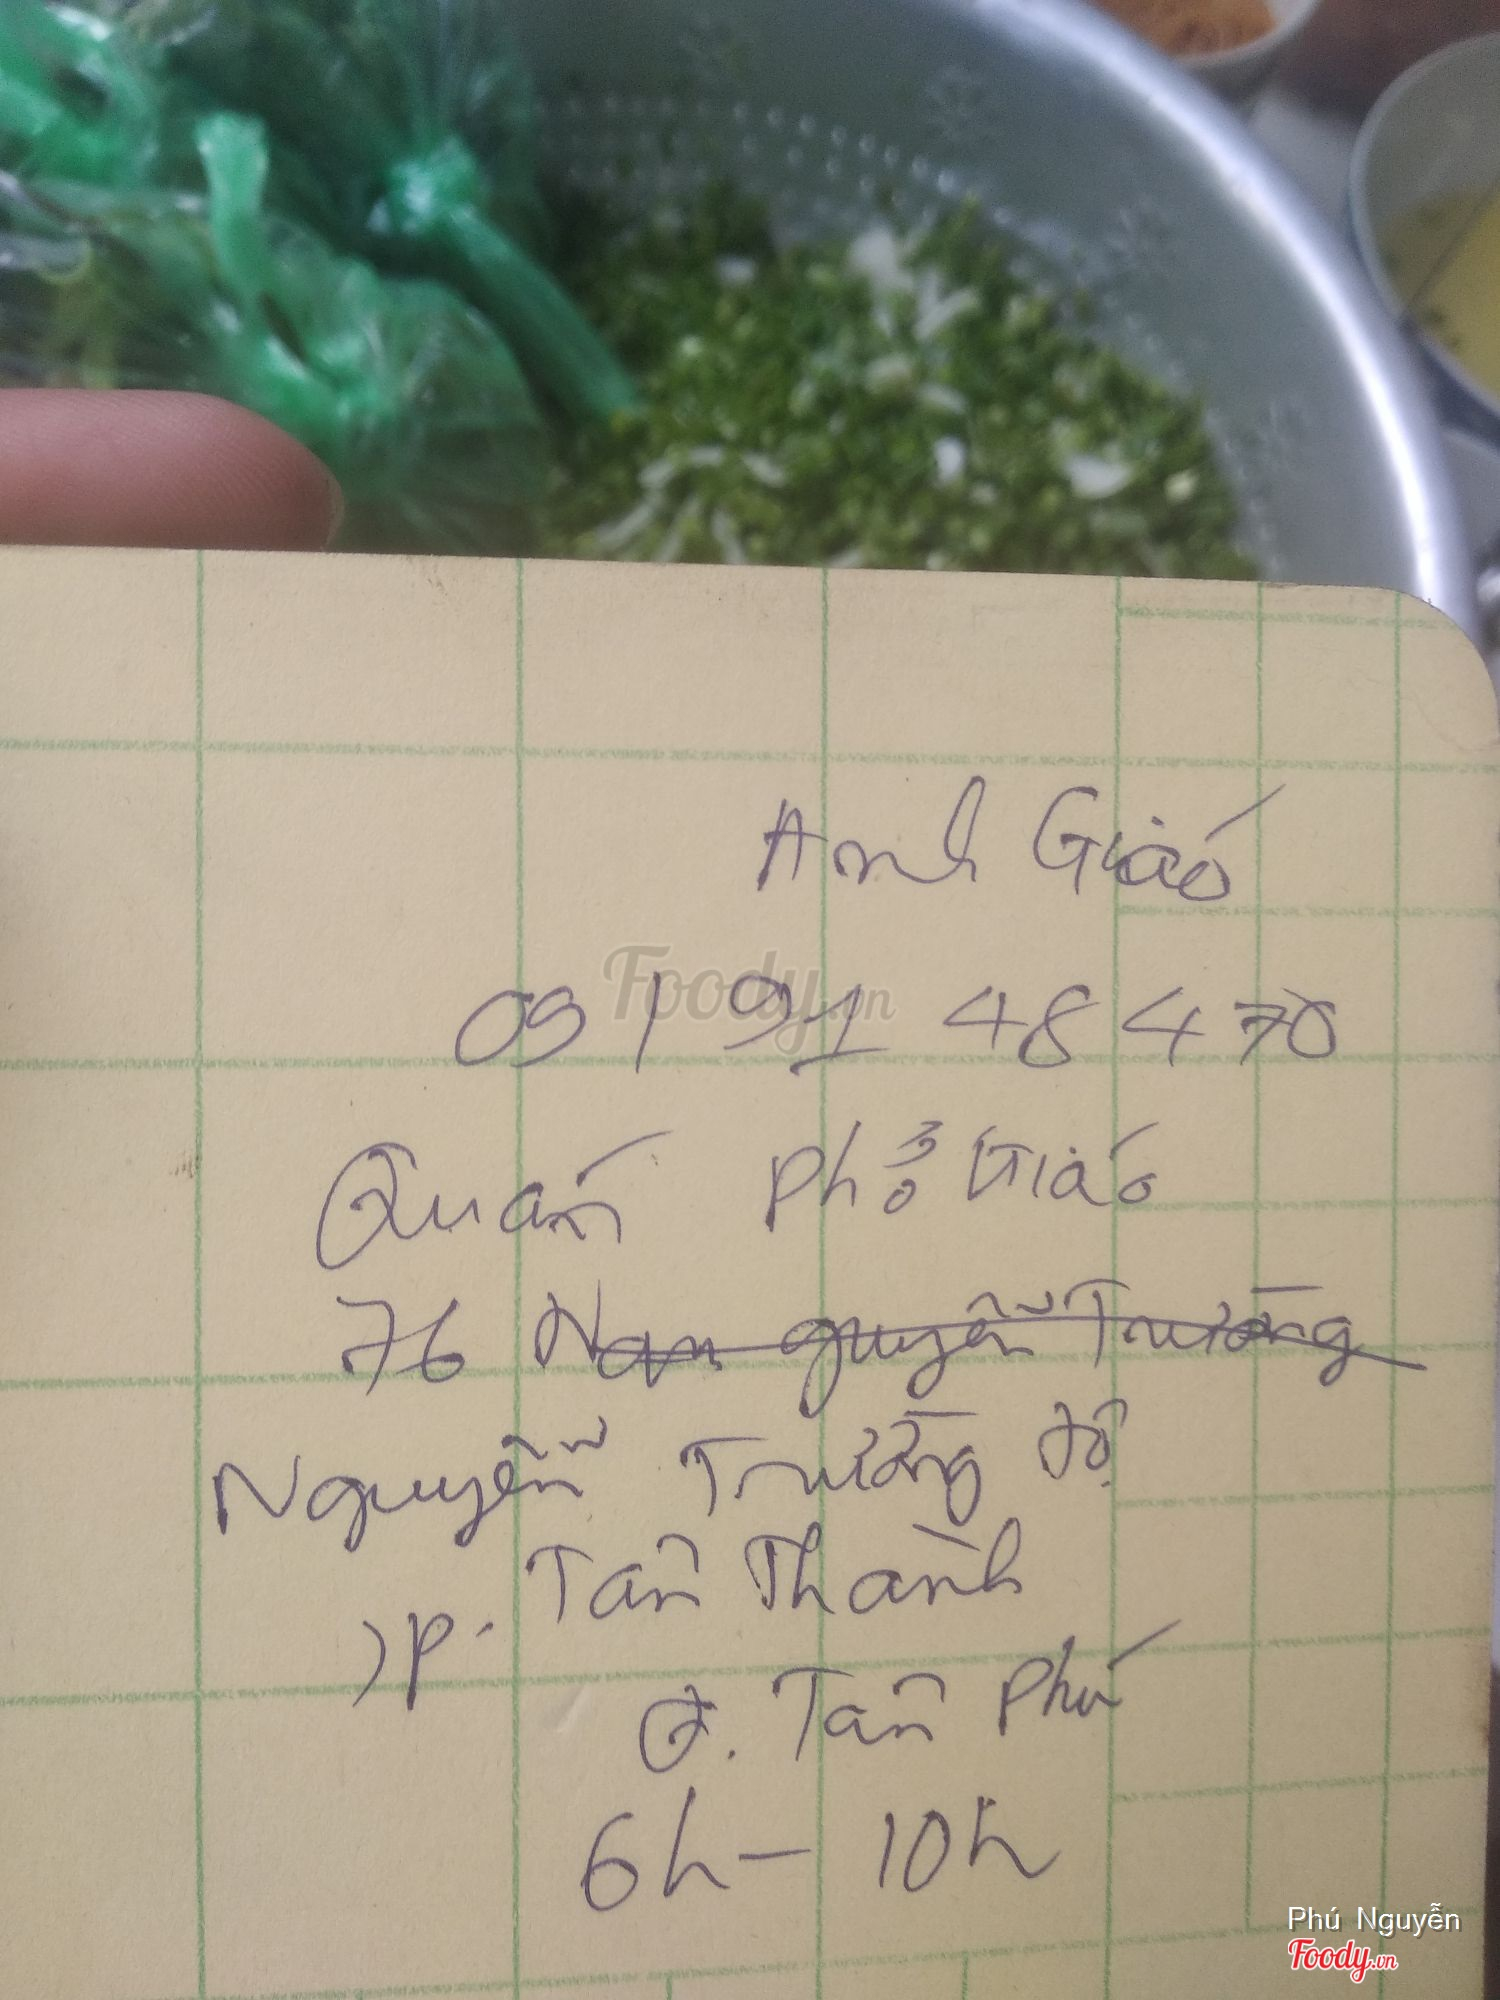 Anh Giáo
091 91 48 470
Foody.vn
Quán Phở Giáo
76 Nam quyễn Trường
Nguyễn Trường Tộ
P. Tân Thành
Q. Tân Phú
6h - 10h
Phú Nguyễn
Foody.vn